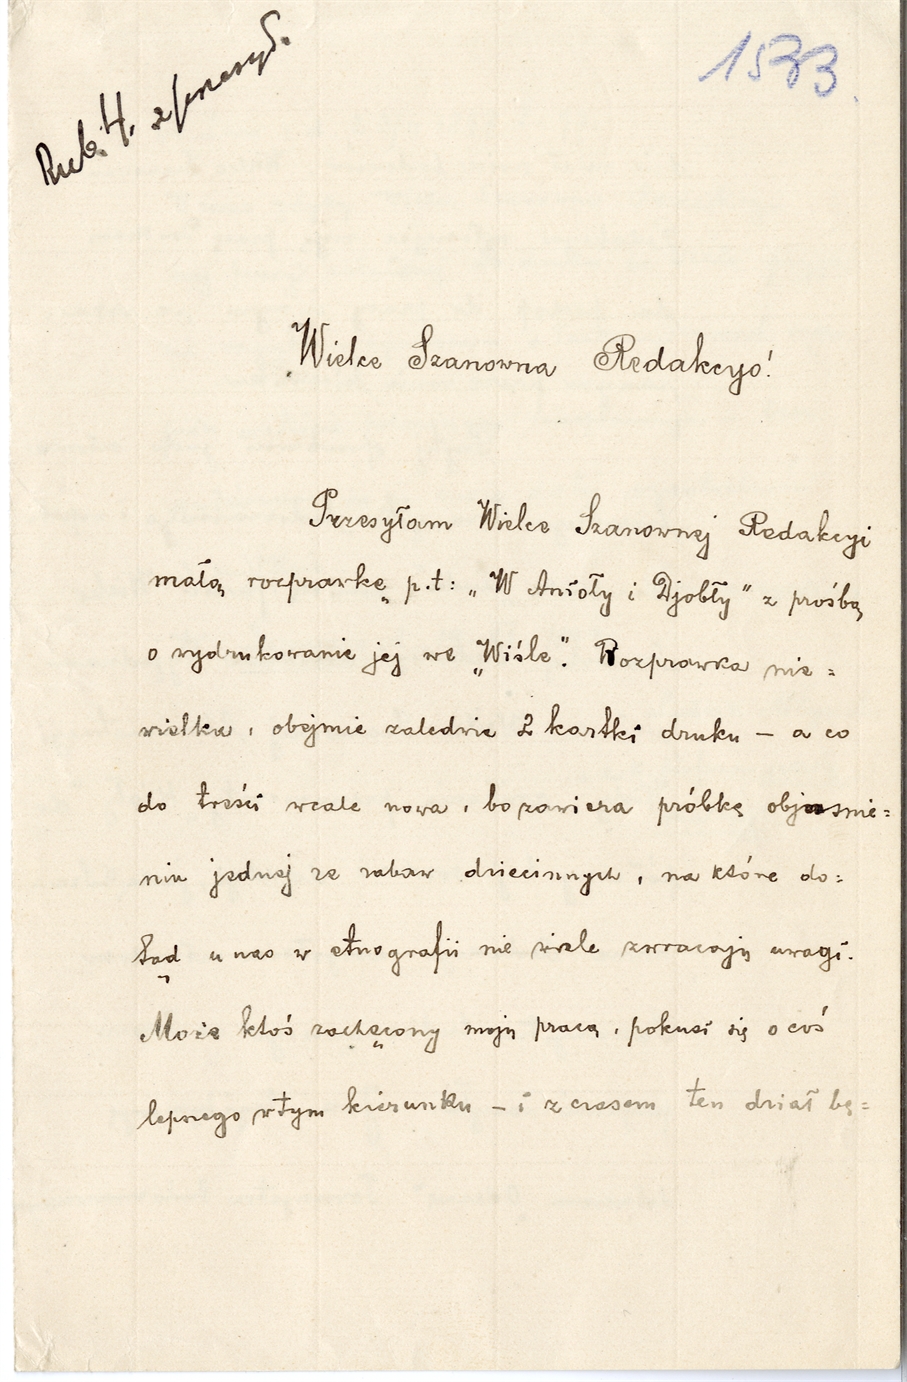 1533.
Rub. 4.
Wielce Szanowna Redakcyo!
Przesyłam Wielce Szanownej Redakcyi
małą rozprawkę p.t: „W Anioły i Djobły" z prośbą
o wydrukowanie jej we „Wiśle". Rozprawka nie=
wielka, obejmie zaledwie 2 kartki druku – a co
do treści wcale nowa, bo zawiera próbkę objaśnie=
nia jednej ze zabaw dziecinnych, na które do=
tąd u nas w etnografii nie wiele zwracają uwagi.
Może ktoś zachęcony moją pracą, pokusi się o coś
lepszego w tym kierunku – i z czasem ten dział bę=